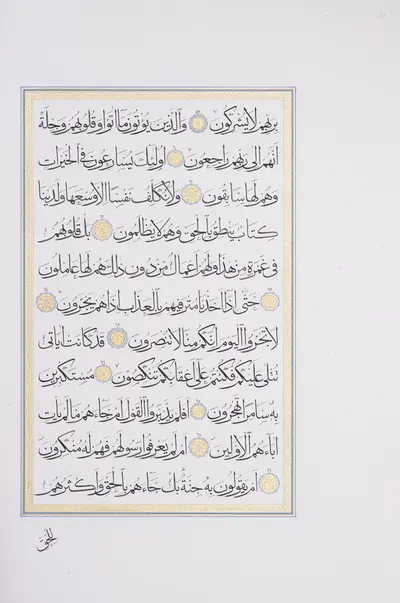 بربهم لا يشركون والذين يؤتون ما اتوا وقلوبهم وجلة
انهم الى ربهم راجعون اولئك يسارعون في الخيرات
وهم لها سابقون ولا نكلف نفسا الا وسعها ولدينا
كتاب ينطق بالحق وهم لا يظلمون بل قلوبهم
في غمرة من هذا ولهم اعمال من دون ذلك هم لها عاملون
حتى اذا اخذنا مترفيهم بالعذاب اذا هم يجئرون
لا تجئروا اليوم انكم منا لا تنصرون قد كانت اياتي
تتلى عليكم فكنتم على اعقابكم تنكصون مستكبرين
به سامرا تهجرون افلم يدبروا القول ام جاءهم ما لم يات
اباءهم الاولين ام لم يعرفوا رسولهم فهم له منكرون
ام يقولون به جنة بل جاءهم بالحق واكثرهم
للحق